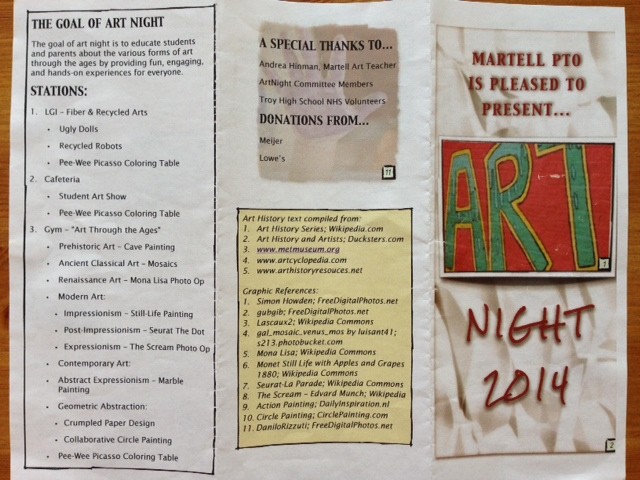 THE GOAL OF ART NIGHT
The goal of art night is to educate students
and parents about the various forms of art
through the ages by providing fun, engaging,
and hands-on experiences for everyone.
STATIONS:
1. LGI – Fiber & Recycled Arts
• Ugly Dolls
• Recycled Robots
• Pee-Wee Picasso Coloring Table
2. Cafeteria
• Student Art Show
• Pee-Wee Picasso Coloring Table
3. Gym – "Art Through the Ages"
• Prehistoric Art – Cave Painting
• Ancient Classical Art – Mosaics
• Renaissance Art – Mona Lisa Photo Op
• Modern Art:
• Impressionism – Still-Life Painting
• Post-Impressionism – Seurat The Dot
• Expressionism – The Scream Photo Op
• Contemporary Art:
• Abstract Expressionism – Marble
Painting
• Geometric Abstraction:
• Crumpled Paper Design
• Collaborative Circle Painting
• Pee-Wee Picasso Coloring Table
A SPECIAL THANKS TO...
Andrea Hinman, Martell Art Teacher
ArtNight Committee Members
Troy High School NHS Volunteers
DONATIONS FROM...
Meijer
Lowe's
11
Art History text compiled from:
1. Art History Series; Wikipedia.com
2. Art History and Artists; Ducksters.com
3. www.metmuseum.org
4. www.artcyclopedia.com
5. www.arthistoryresouces.net
Graphic References:
1. Simon Howden; FreeDigitalPhotos.net
2. gubgib; FreeDigitalPhotos.net
3. Lascaux2; Wikipedia Commons
4. gal_mosaic_venus_mos by luisant41;
s213.photobucket.com
5. Mona Lisa; Wikipedia Commons
6. Monet Still Life with Apples and Grapes
1880; Wikipedia Commons
7. Seurat-La Parade; Wikipedia Commons
8. The Scream – Edvard Munch; Wikipedia
9. Action Painting; DailyInspiration.nl
10. Circle Painting; CirclePainting.com
11. DaniloRizzuti; FreeDigitalPhotos.net
MARTELL PTO
IS PLEASED TO
PRESENT...
ART
1
NIGHT
2014
2